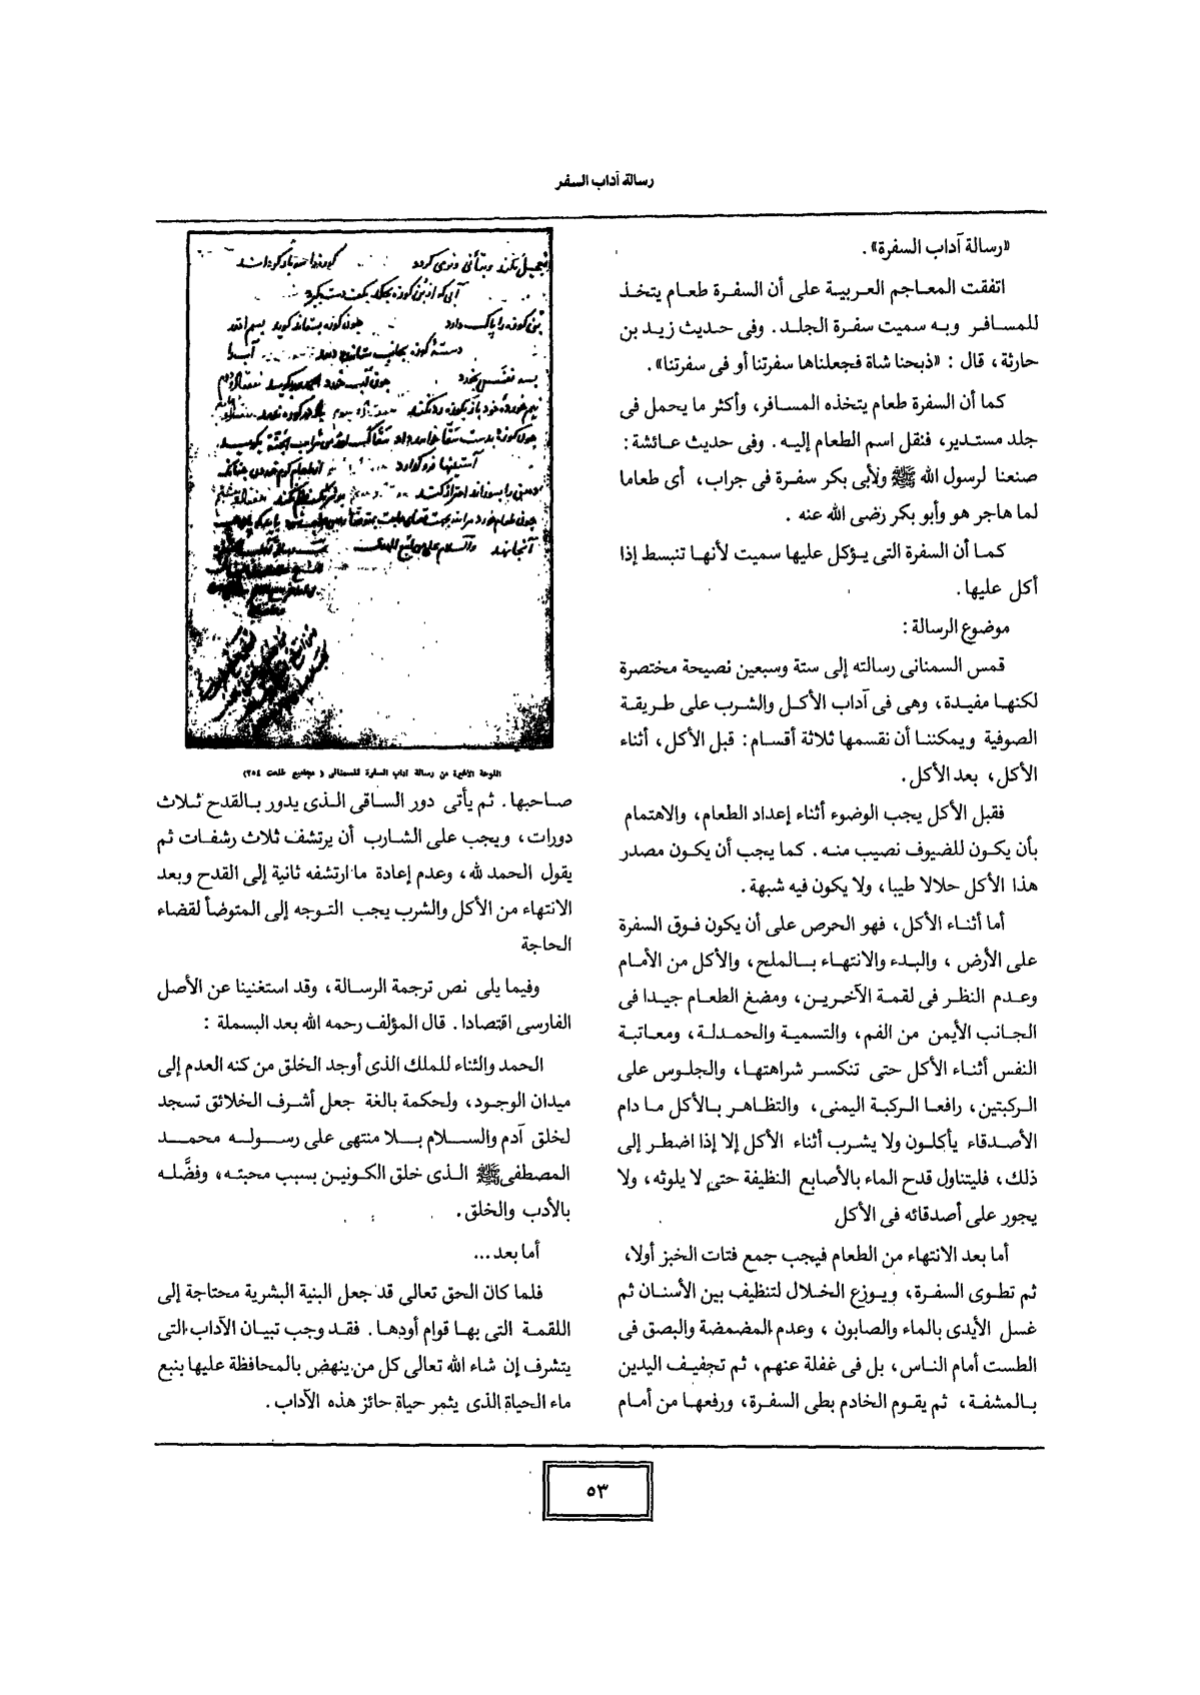 رسالة آداب السفر
«رسالة آداب السفرة» .
اتفقت المعاجم العربية على أن السفرة طعام يتخذ
للمسافر وبه سميت سفرة الجلد . وفى حديث زيد بن
حارثة ، قال : «ذبحنا شاة فجعلناها سفرتنا أو فى سفرتنا» .
كما أن السفرة طعام يتخذه المسافر، وأكثر ما يحمل فى
جلد مستدير، فنقل اسم الطعام إليه . وفى حديث عائشة :
صنعنا لرسول الله ﷺ ولأبى بكر سفرة فى جراب، أى طعاما
لما هاجر هو وأبو بكر رضى الله عنه .
كما أن السفرة التى يؤكل عليها سميت لأنها تنبسط إذا
أكل عليها .
موضوع الرسالة :
قمس السمنانى رسالته إلى ستة وسبعين نصيحة مختصرة
لكنها مفيدة، وهى فى آداب الأكل والشرب على طريقة
الصوفية ويمكننا أن نقسمها ثلاثة أقسام: قبل الأكل، أثناء
الأكل، بعد الأكل .
فقبل الأكل يجب الوضوء أثناء إعداد الطعام، والاهتمام
بأن يكون للضيوف نصيب منه . كما يجب أن يكون مصدر
هذا الأكل حلالا طيبا، ولا يكون فيه شبهة .
أما أثناء الأكل، فهو الحرص على أن يكون فوق السفرة
على الأرض ، والبدء والانتهاء بالملح، والأكل من الأمام
وعدم النظر فى لقمة الآخرين، ومضغ الطعام جيدا فى
الجانب الأيمن من الفم، والتسمية والحمدلة، ومعاتبة
النفس أثناء الأكل حتى تنكسر شراهتها، والجلوس على
الركبتين، رافعا الركبة اليمنى، والتظاهر بالأكل ما دام
الأصدقاء يأكلون ولا يشرب أثناء الأكل إلا إذا اضطر إلى
ذلك، فليتناول قدح الماء بالأصابع النظيفة حتى لا يلوثه، ولا
يجور على أصدقائه فى الأكل
أما بعد الانتهاء من الطعام فيجب جمع فتات الخبز أولا،
ثم تطوى السفرة، ويوزع الخلال لتنظيف بين الأسنان ثم
غسل الأيدى بالماء والصابون ، وعدم المضمضة والبصق فى
الطست أمام الناس، بل فى غفلة عنهم، ثم تجفيف اليدين
بالمشفة، ثم يقوم الخادم بطى السفرة، ورفعها من أمام
اللوحة الأخيرة من رسالة آداب السفرة للسمنانى ( مجاميع طلعت ٢٥٤)
صاحبها . ثم يأتى دور الساقى الذى يدور بالقدح ثلاث
دورات، ويجب على الشارب أن يرتشف ثلاث رشفات ثم
يقول الحمد لله، وعدم إعادة ما ارتشفه ثانية إلى القدح وبعد
الانتهاء من الأكل والشرب يجب التوجه إلى المتوضأ لقضاء
الحاجة
وفيما يلى نص ترجمة الرسالة، وقد استغنينا عن الأصل
الفارسى اقتصادا . قال المؤلف رحمه الله بعد البسملة :
الحمد والثناء للملك الذى أوجد الخلق من كنه العدم إلى
ميدان الوجود، ولحكمة بالغة جعل أشرف الخلائق تسجد
لخلق آدم والسلام بلا منتهى على رسوله محمد
المصطفى ﷺ الذى خلق الكونين بسبب محبته، وفضَّله
بالأدب والخلق .
أما بعد ...
فلما كان الحق تعالى قد جعل البنية البشرية محتاجة إلى
اللقمة التى بها قوام أودها . فقد وجب تبيان الآداب التى
يتشرف إن شاء الله تعالى كل من ينهض بالمحافظة عليها بنبع
ماء الحياة الذى يثمر حياة حائز هذه الآداب .
٥٣